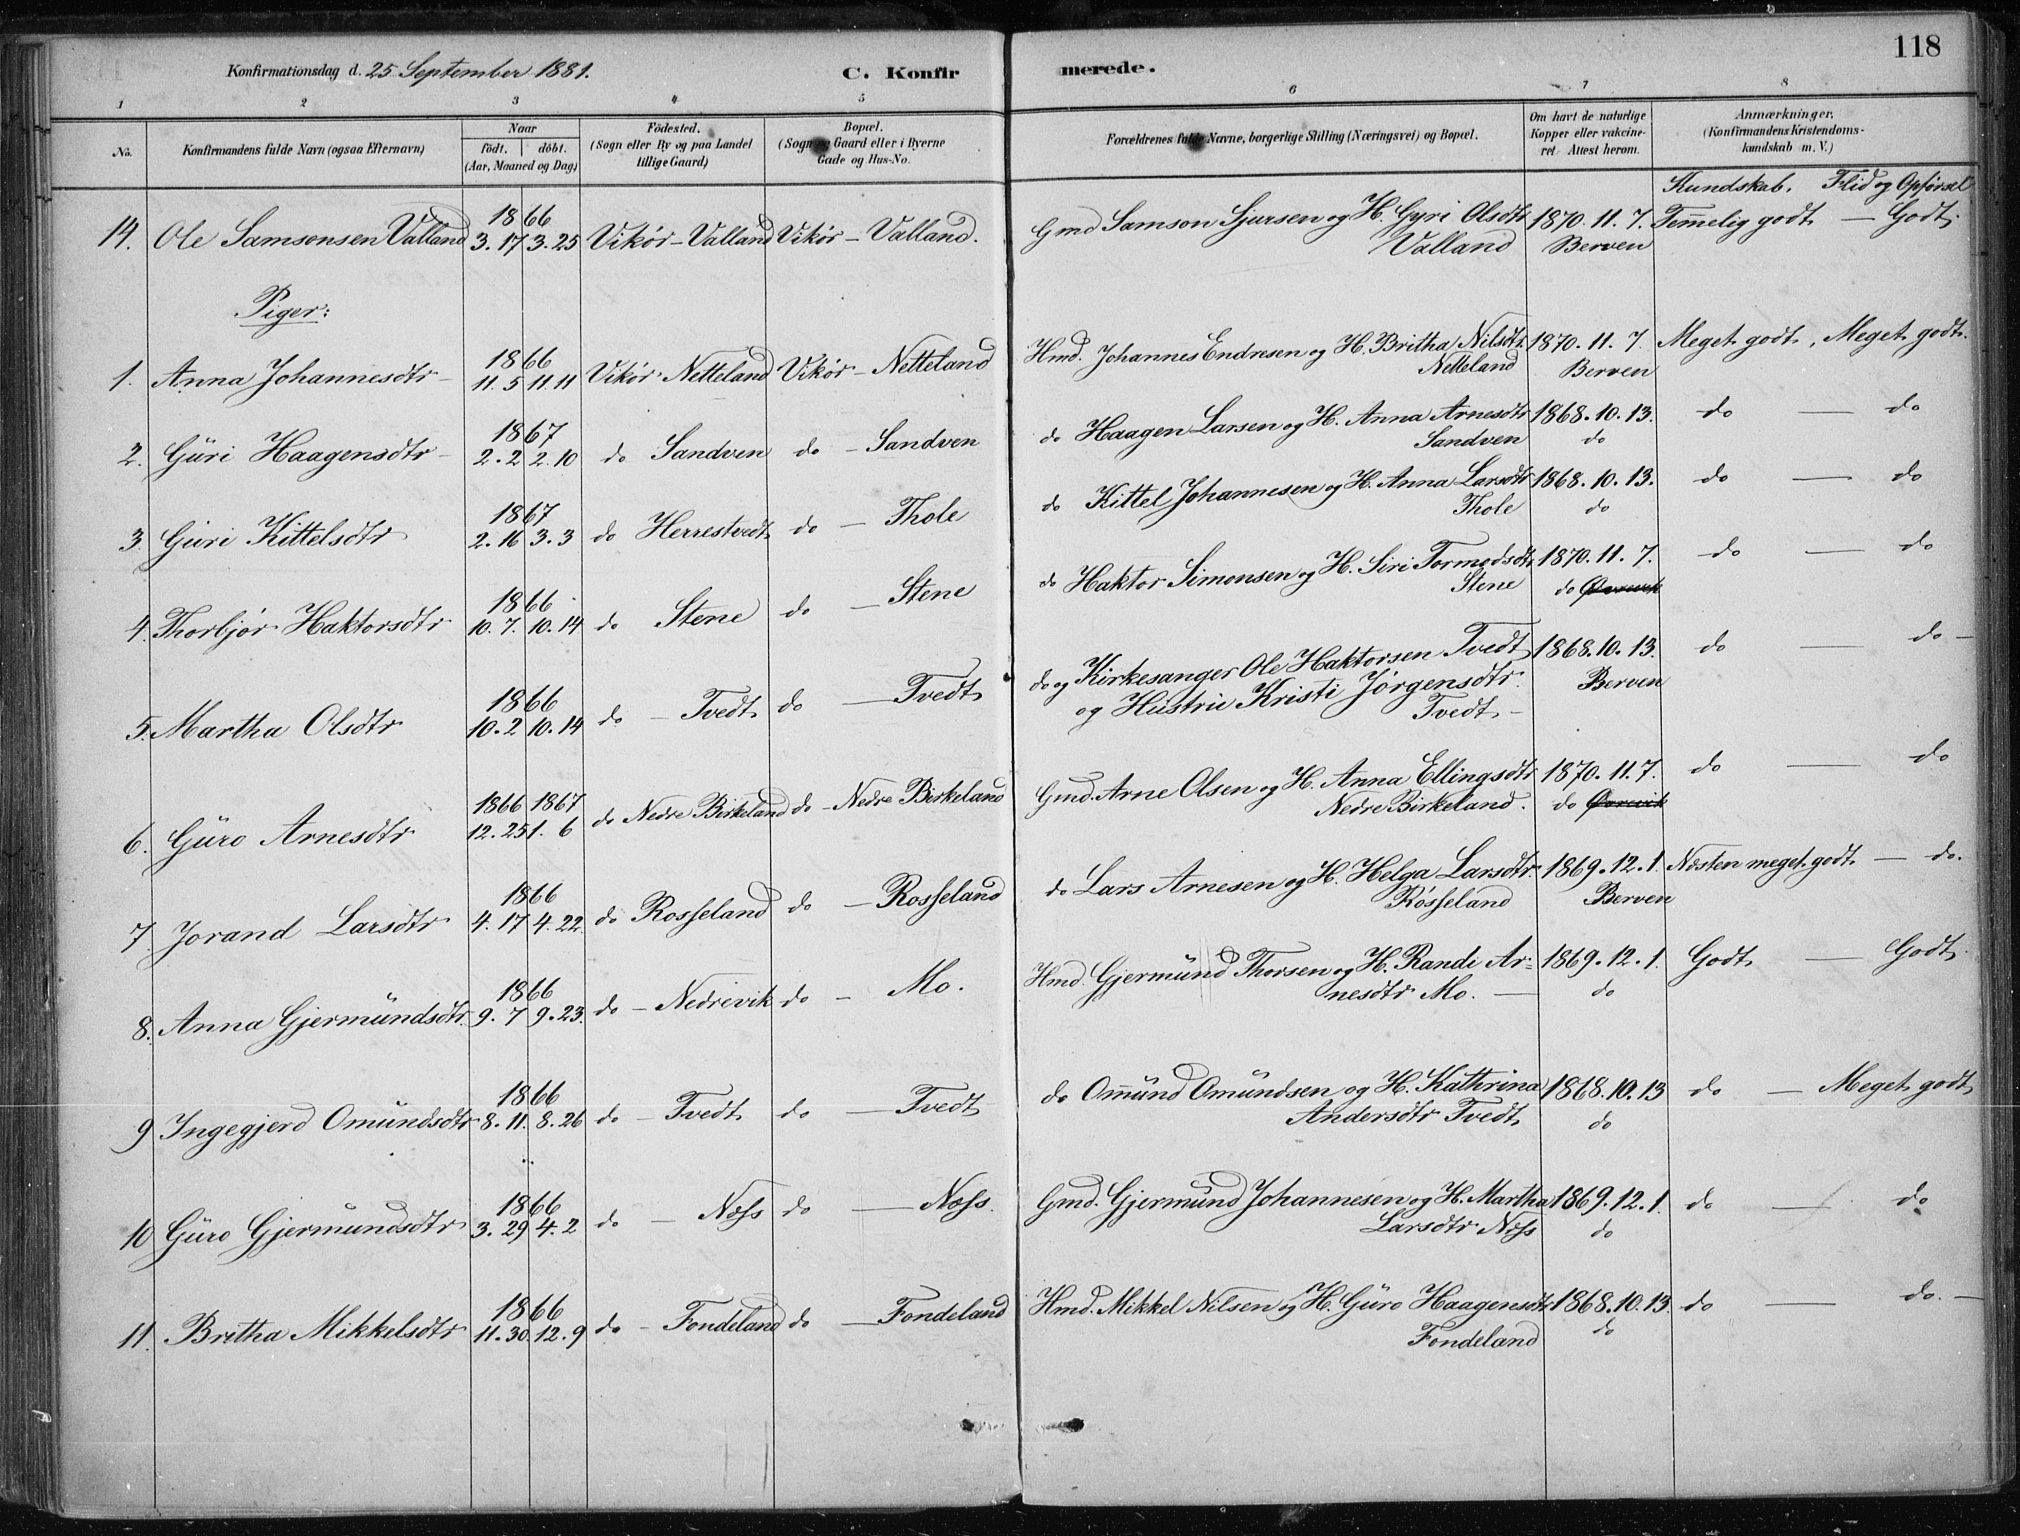 118
Konfirmationsdag d. 25 September 1881. C. Konfirmerede.
1 2 3 4 5 6 7 8
No. Konfirmandens fulde Navn (ogsaa Efternavn) Naar födt. döbt. (Aar, Maaned og Dag) Födested. (Sogn eller By og paa Landet tillige Gaard) Bopæl. (Sogn og Gaard eller i Byerne Gade og Hus-No. Forældrenes fulde Navne, borgerlige Stilling (Næringsvei) og Bopæl. Om havt de naturlige Kopper eller vakcineret. Attest herom. Anmærkninger. (Konfirmandens Kristendomskundskab m. V.)
Kundskab. Flid og Opførsel
1866
14. Ole Samsonsen Valland 3. 17 3. 25 Vikør - Valland Vikør - Valland. Gmd Samson Sjursen og H. Gyri Olsdtr 1870. 11. 7. Temmelig godt - Godt.
Valland Berven
Piger:
1866
1. Anna Johannesdtr 11. 5 11. 11 Vikør Netteland Vikør - Netteland Hmd. Johannes Endresen og H. Britha Nilsdtr 1870. 11. 7. Meget godt. Meget godt.
Netteland Berven
1867
2. Güri Haagensdtr 2. 2 2. 10 do Sandven do - Sandven do Haagen Larsen og H. Anna Arnesdtr 1868. 10. 13. do - do
Sandven do
1867
3. Güri Kittelsdtr 2. 16 3. 3 do Herrestvedt do - Thole do Kittel Johannesen og H. Anna Larsdtr 1868. 10. 13. do - do
Thole do
1866
4. Thorbjør Haktorsdtr 10. 7. 10. 14 do Stene do - Stene do Haktor Simonsen og H. Siri Tormodsdtr 1870. 11. 7. do - do
Stene do
1866
5. Martha Olsdtr 10. 2 10. 14 do - Tvedt do - Tvedt do og Kirkesanger Ole Haktorsen Tvedt 1868. 10. 13. do - do -
og Hustrü Kristi Jørgensdtr Berven
Tvedt -
1866 1867
6. Güro Arnesdtr 12. 25 1. 6 do Nedre Birkeland do - Nedre Birkeland Gmd. Arne Olsen og H. Anna Ellingsdtr 1870. 11. 7. do - do
Nedre Birkeland. do
1866
7. Jorand Larsdtr 4. 17 4. 22 do Rosseland do - Rosseland do Lars Arnesen og H. Helga Larsdtr 1869. 12. 1. Næsten meget godt - do.
Røsseland Berven
1866
8. Anna Gjermündsdtr. 9. 7 9. 23. do - Nedrevik do - Mo. Hmd. Gjermünd Thorsen og H. Randi Ar- 1869. 12. 1. Godt - Godt.
nesdtr Mo. - do
1866
9 Ingegjerd Omündsdtr 8. 11. 8. 26 do - Tvedt do - Tvedt do Ommünd Omündsen og H. Kathrina 1868. 10. 13 do - Meget godt
Andersdtr Tvedt do
1866
10 Güro Gjermundsdtr 3. 29 4. 2 do - Næss do - Næss. Gmd. Gjermünd Johannesen og H. Martha 1869. 12. 1. do - do
Larsdtr Næss do
1866
11. Britha Mikkelsdtr 11. 30. 12. 9 do - Fondeland do - Fondeland Hmd. Mikkel Nilsen og H. Güro Haagensdtr 1868. 10. 13. do - do. -
Fondeland do